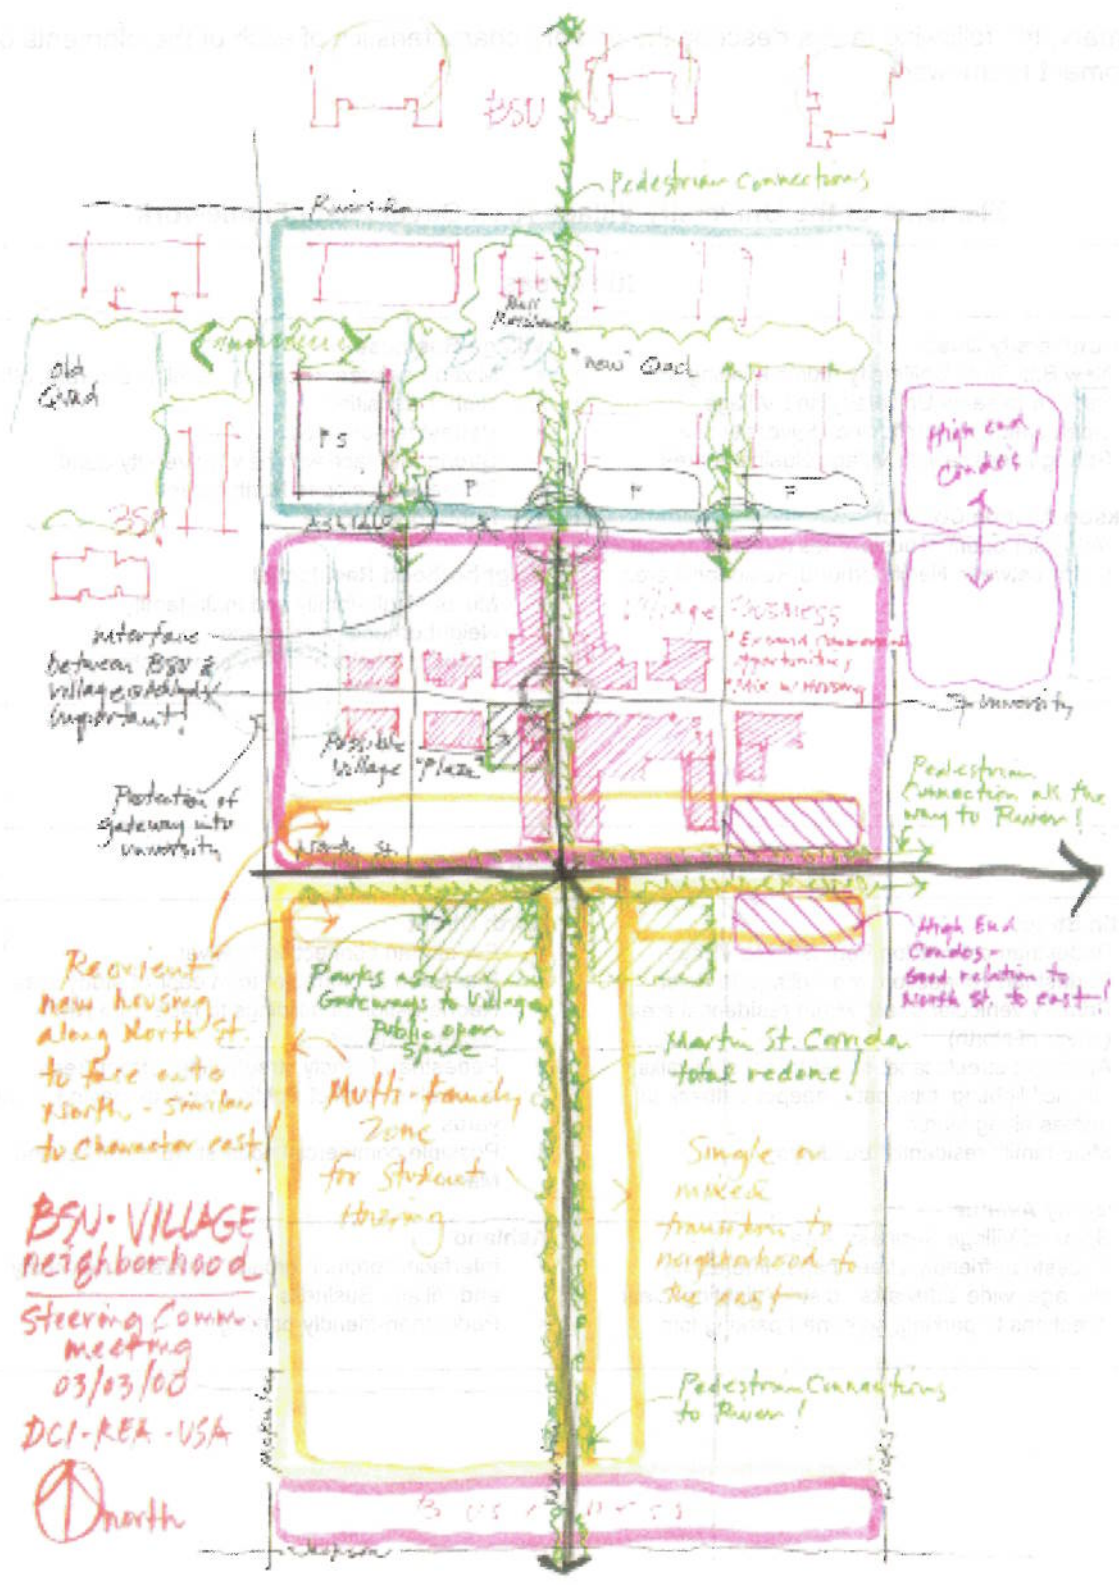 BSU
Pedestrian Connections
Riverside
Ball
"new" Quad
Old
Quad
PS
P
P
P
High end
Condos
BSU
Ashland
Interface
between BSU &
village
important!
Village Business
* Expand commercial
opportunities
* Mix w/ Housing
University
Possible
Village "Plaza"
Protection of
gateway into
University
Pedestrian
Connection all the
way to River!
North St.
High End
Condos -
Good relation to
North St. to east!
Reorient
new housing
along North St.
to face onto
North - Similar
to character east!
Parks as
Gateways to Village
Public open
Space
Martin St. Corridor
total redone!
Multi-family
Zone
for Student
Housing
Single or
mixed
transition to
neighborhood to
the east
BSU · VILLAGE
neighborhood
Steering Comm.
meeting
03/03/00
DCI - KEA - USA
north
Pedestrian Connections
to River!
McKinley
Dicks
Business
Jackson